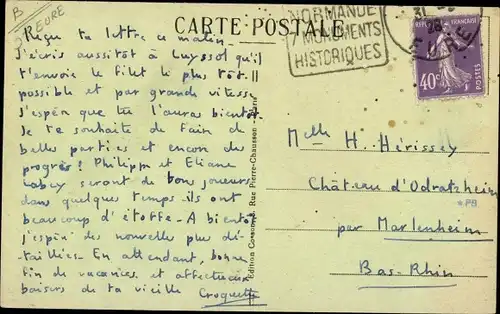 B
EURE
CARTE POSTALE
NORMANDE
MONUMENTS
HISTORIQUES
31
26
EURE
40c
POSTES
Reçu ta lettre ce matin.
J'écris aussitôt à Luyssol qu'il
t'envoie le filet le plus tôt
possible et par grande vitesse
j'espère que tu l'auras bientôt.
Je te souhaite de faire de
belles parties et encore des
progrès! Philippe et Eliane
seront de bons joueurs
dans quelques temps - ils ont
beaucoup d'étoffe - A bientôt
j'espère des nouvelles plus dé-
taillées. En attendant, bonne
fin de vacances et affectueux
baisers de ta vieille Croquette
Rue Pierre-Chausson - Paris
Melle H. Hérissey
Château d'Odratzheim
*PB
par Marlenheim
Bas-Rhin